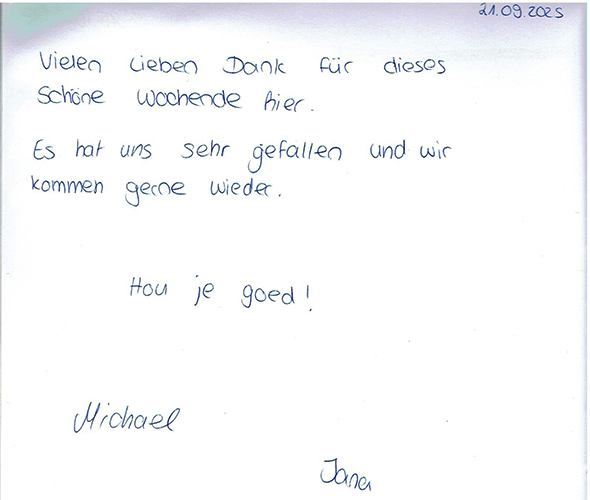 21.09.2025
Vielen Lieben Dank für dieses
Schöne Wochende hier.
Es hat uns sehr gefallen und wir
kommen gerne wieder.
Hou je goed!
Michael
Jana